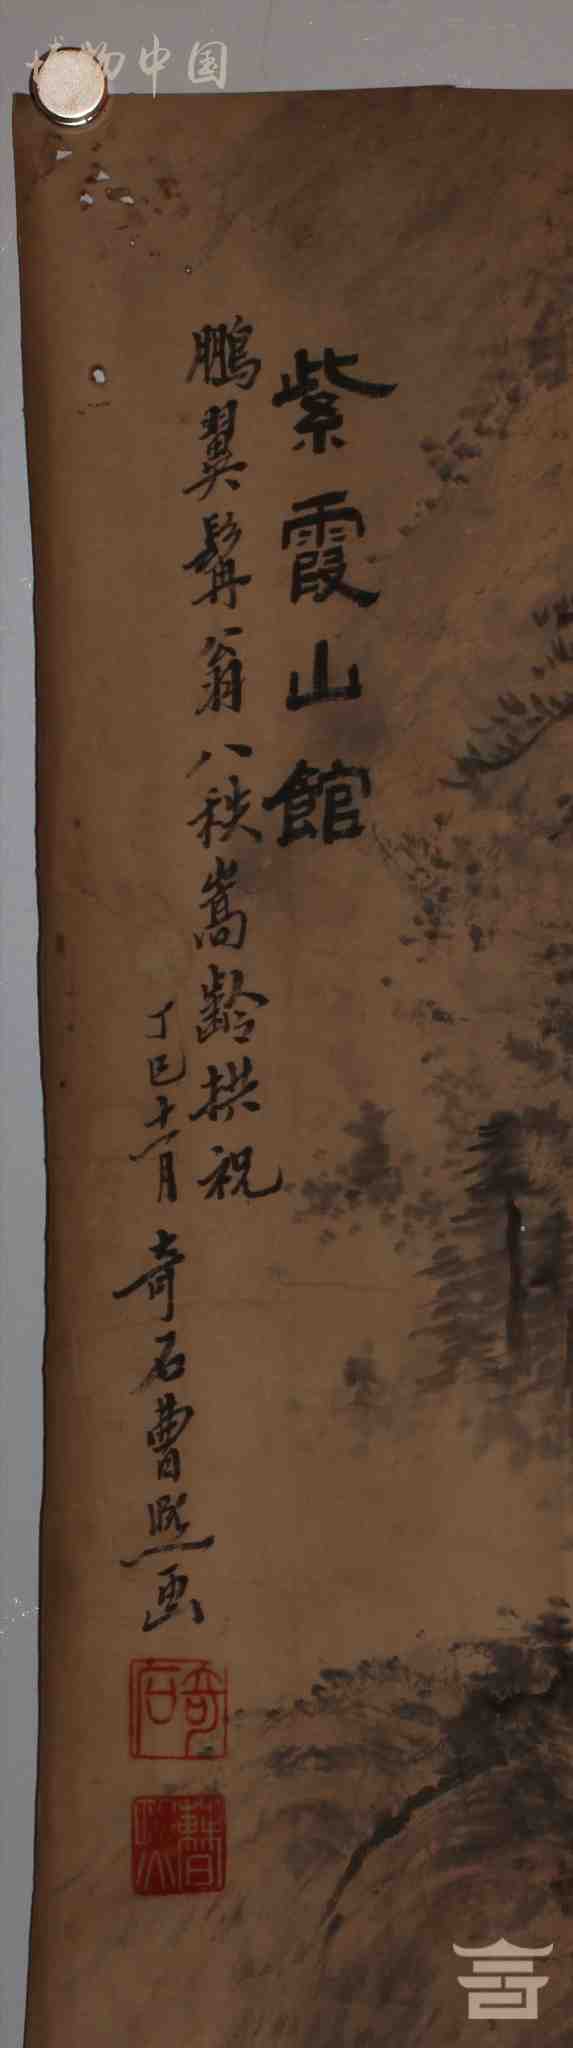 博物中国
紫霞山館
鵬翼髯翁八秩嵩齡拱祝
丁巳十一月奇石曹熙画
奇石
曹熙